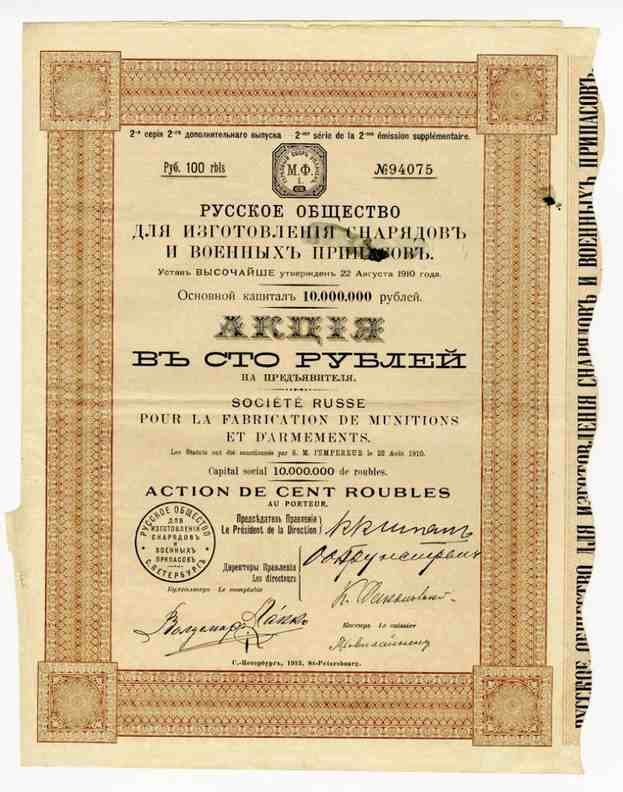 2-я серія 2-го дополнительнаго выпуска 2-me série de la 2-me émission supplémentaire.
Руб. 100 rbls
М.Ф.
1.
№94075
РУССКОЕ ОБЩЕСТВО
ДЛЯ ИЗГОТОВЛЕНІЯ СНАРЯДОВЪ
И ВОЕННЫХЪ ПРИПАСОВЪ.
Уставъ ВЫСОЧАЙШЕ утвержденъ 22 Августа 1910 года.
Основной капиталъ 10.000.000 рублей.
АКЦІЯ
ВЪ СТО РУБЛЕЙ
НА ПРЕДЪЯВИТЕЛЯ.
SOCIÉTÉ RUSSE
POUR LA FABRICATION DE MUNITIONS
ET D'ARMEMENTS.
Les Statuts ont été sanctionnés par S. M. l'EMPEREUR le 22 Août 1910.
Capital social 10.000.000 de roubles.
ACTION DE CENT ROUBLES
AU PORTEUR.
Предсѣдатель Правленія
Le Président de la Direction
РУССКОЕ ОБЩЕСТВО
ДЛЯ
ИЗГОТОВЛЕНІЯ
СНАРЯДОВЪ
И
ВОЕННЫХЪ
ПРИПАСОВЪ
С.-ПЕТЕРБУРГЪ
Директоры Правленія
Les directeurs
Бухгалтеръ - Le comptable
Кассиръ Le caissier
С.-Петербургъ, 1913, St-Petersbourg.
РУССКОЕ ОБЩЕСТВО ДЛЯ ИЗГОТОВЛЕНІЯ СНАРЯДОВЪ И ВОЕННЫХЪ ПРИПАСОВЪ.